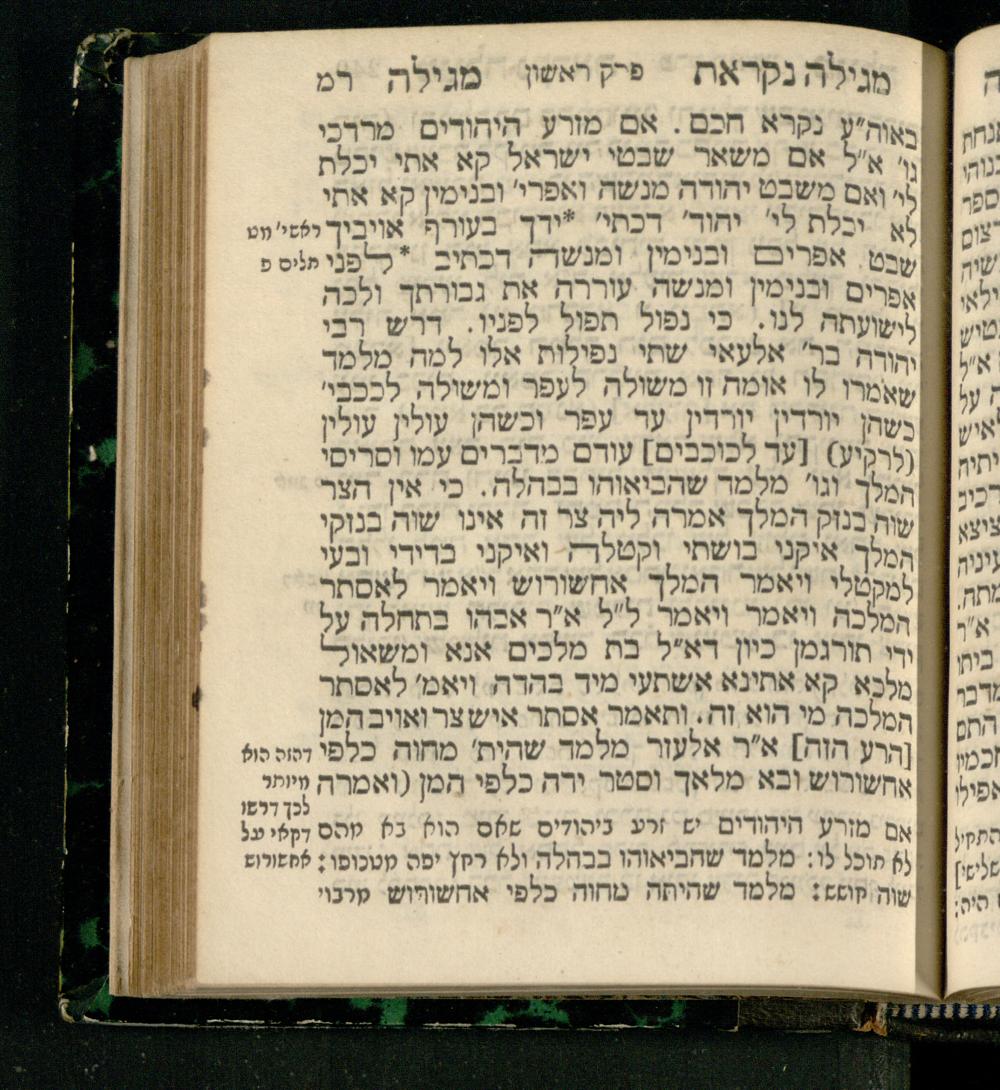 מגילה נקראת פרק ראשון מגילה רמ
באוה״ע נקרא חכם. אם מזרע היהודים מרדכי
גו׳ א״ל אם משאר שבטי ישראל קא אתי יכלת
לי׳ ואם משבט יהודה מנשה ואפרי׳ ובנימין קא אתי
לא יכלת לי׳ יהוד׳ דכתי׳ *ידך בעורף אויביך
שבט אפרים ובנימין ומנשה דכתיב *לפני
תלים פ
אפרים ובנימין ומנשה עוררה את גבורתך ולכה
לישועתה לנו. כי נפול תפול לפניו. דרש רבי
יהודה בר׳ אלעאי שתי נפילות אלו למה מלמד
שאמרו לו אומה זו משולה לעפר ומשולה לככבי׳
כשהן יורדין יורדין עד עפר וכשהן עולין עולין
(לרקיע) [עד לכוכבים] עודם מדברים עמו וסריסי
המלך וגו׳ מלמד שהביאוהו בבהלה. כי אין הצר
שוה בנזק המלך אמרה ליה צר זה אינו שוה בנזקי
המלך איקני בושתי וקטלה ואיקני בדידי ובעי
למקטלי ויאמר המלך אחשורוש ויאמר לאסתר
המלכה ויאמר ויאמר ל״ל א״ר אבהו בתחלה על
ידי תורגמן כיון דא״ל בת מלכים אנא ומשאול
מלכא קא אתינא אשתעי מיד בהדה ויאמ׳ לאסתר
המלכה מי הוא זה. ותאמר אסתר איש צר ואויב המן
[הרע הזה] א״ר אלעזר מלמד שהית׳ מחוה כלפי
אחשורוש ובא מלאך וסטר ידה כלפי המן (ואמרה
דהזה הוא
מיותר
לכך דרשו
דקאי על
אחשורוש
אם מזרע היהודים יש זרע ביהודים שאם הוא בא מהם
לא תוכל לו: מלמד שהביאוהו בבהלה ולא רחץ יפה מטנופו:
שוה חושש: מלמד שהיתה מחוה כלפי אחשורוש מרבוי